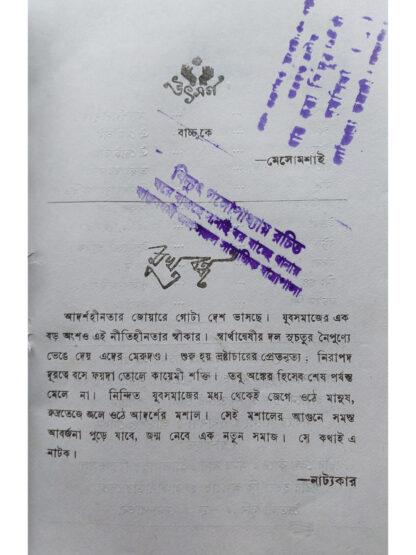 উৎসর্গ
বাচ্চুকে
—মেসোমশাই
বিদ্যুৎ গঙ্গোপাধ্যায় রচিত
মুখবন্ধ
আদর্শহীনতার জোয়ারে গোটা দেশ ভাসছে। যুবসমাজের এক
বড় অংশও এই নীতিহীনতার স্বীকার। স্বার্থান্বেষীর দল সুচতুর নৈপুণ্যে
ভেঙে দেয় এদের মেরুদণ্ড। শুরু হয় ভ্রষ্টাচারের প্রেতনৃত্য; নিরাপদ
দূরত্বে বসে ফয়দা তোলে কায়েমী শক্তি। তবু অঙ্কের হিসেব শেষ পর্যন্ত
মেলে না। নিন্দিত যুবসমাজের মধ্য থেকেই জেগে ওঠে মানুষ,
রুদ্রতেজে জ্বলে ওঠে আদর্শের মশাল। সেই মশালের আগুনে সমস্ত
আবর্জনা পুড়ে যাবে, জন্ম নেবে এক নতুন সমাজ। সে কথাই এ
নাটক।
—নাট্যকার